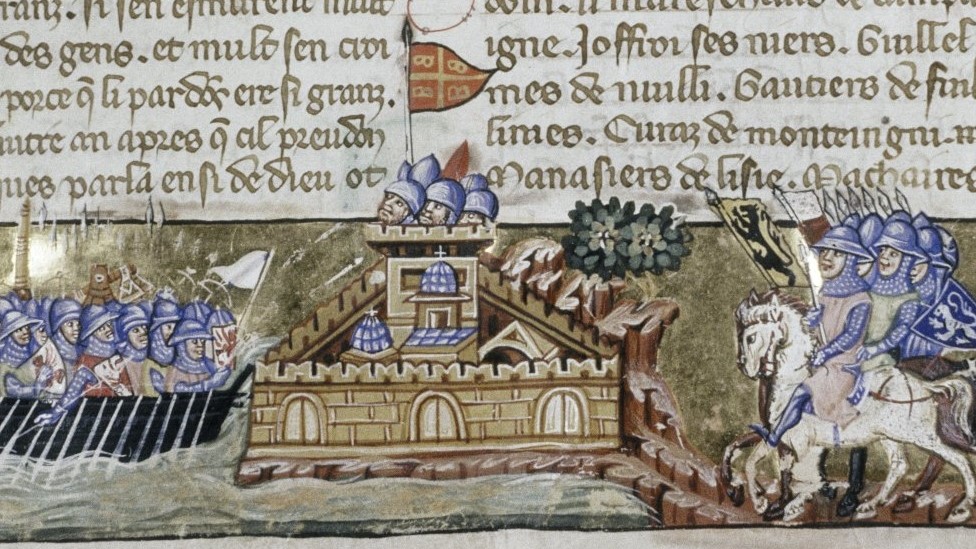 ranz. si sen esmurent mult
des gens. et mult sen croi
porce q̃ li pardõs ere si granz.
autre an apres que cil preudõ
ques parla ensi de dieu ot
doin. li mareschaus de campa
igne. Joffroi ses niers. Guillel
mes de nuilli. Gautiers de ful
limes. Euraz de monteingni.
Manasiers de lisle. Machaires